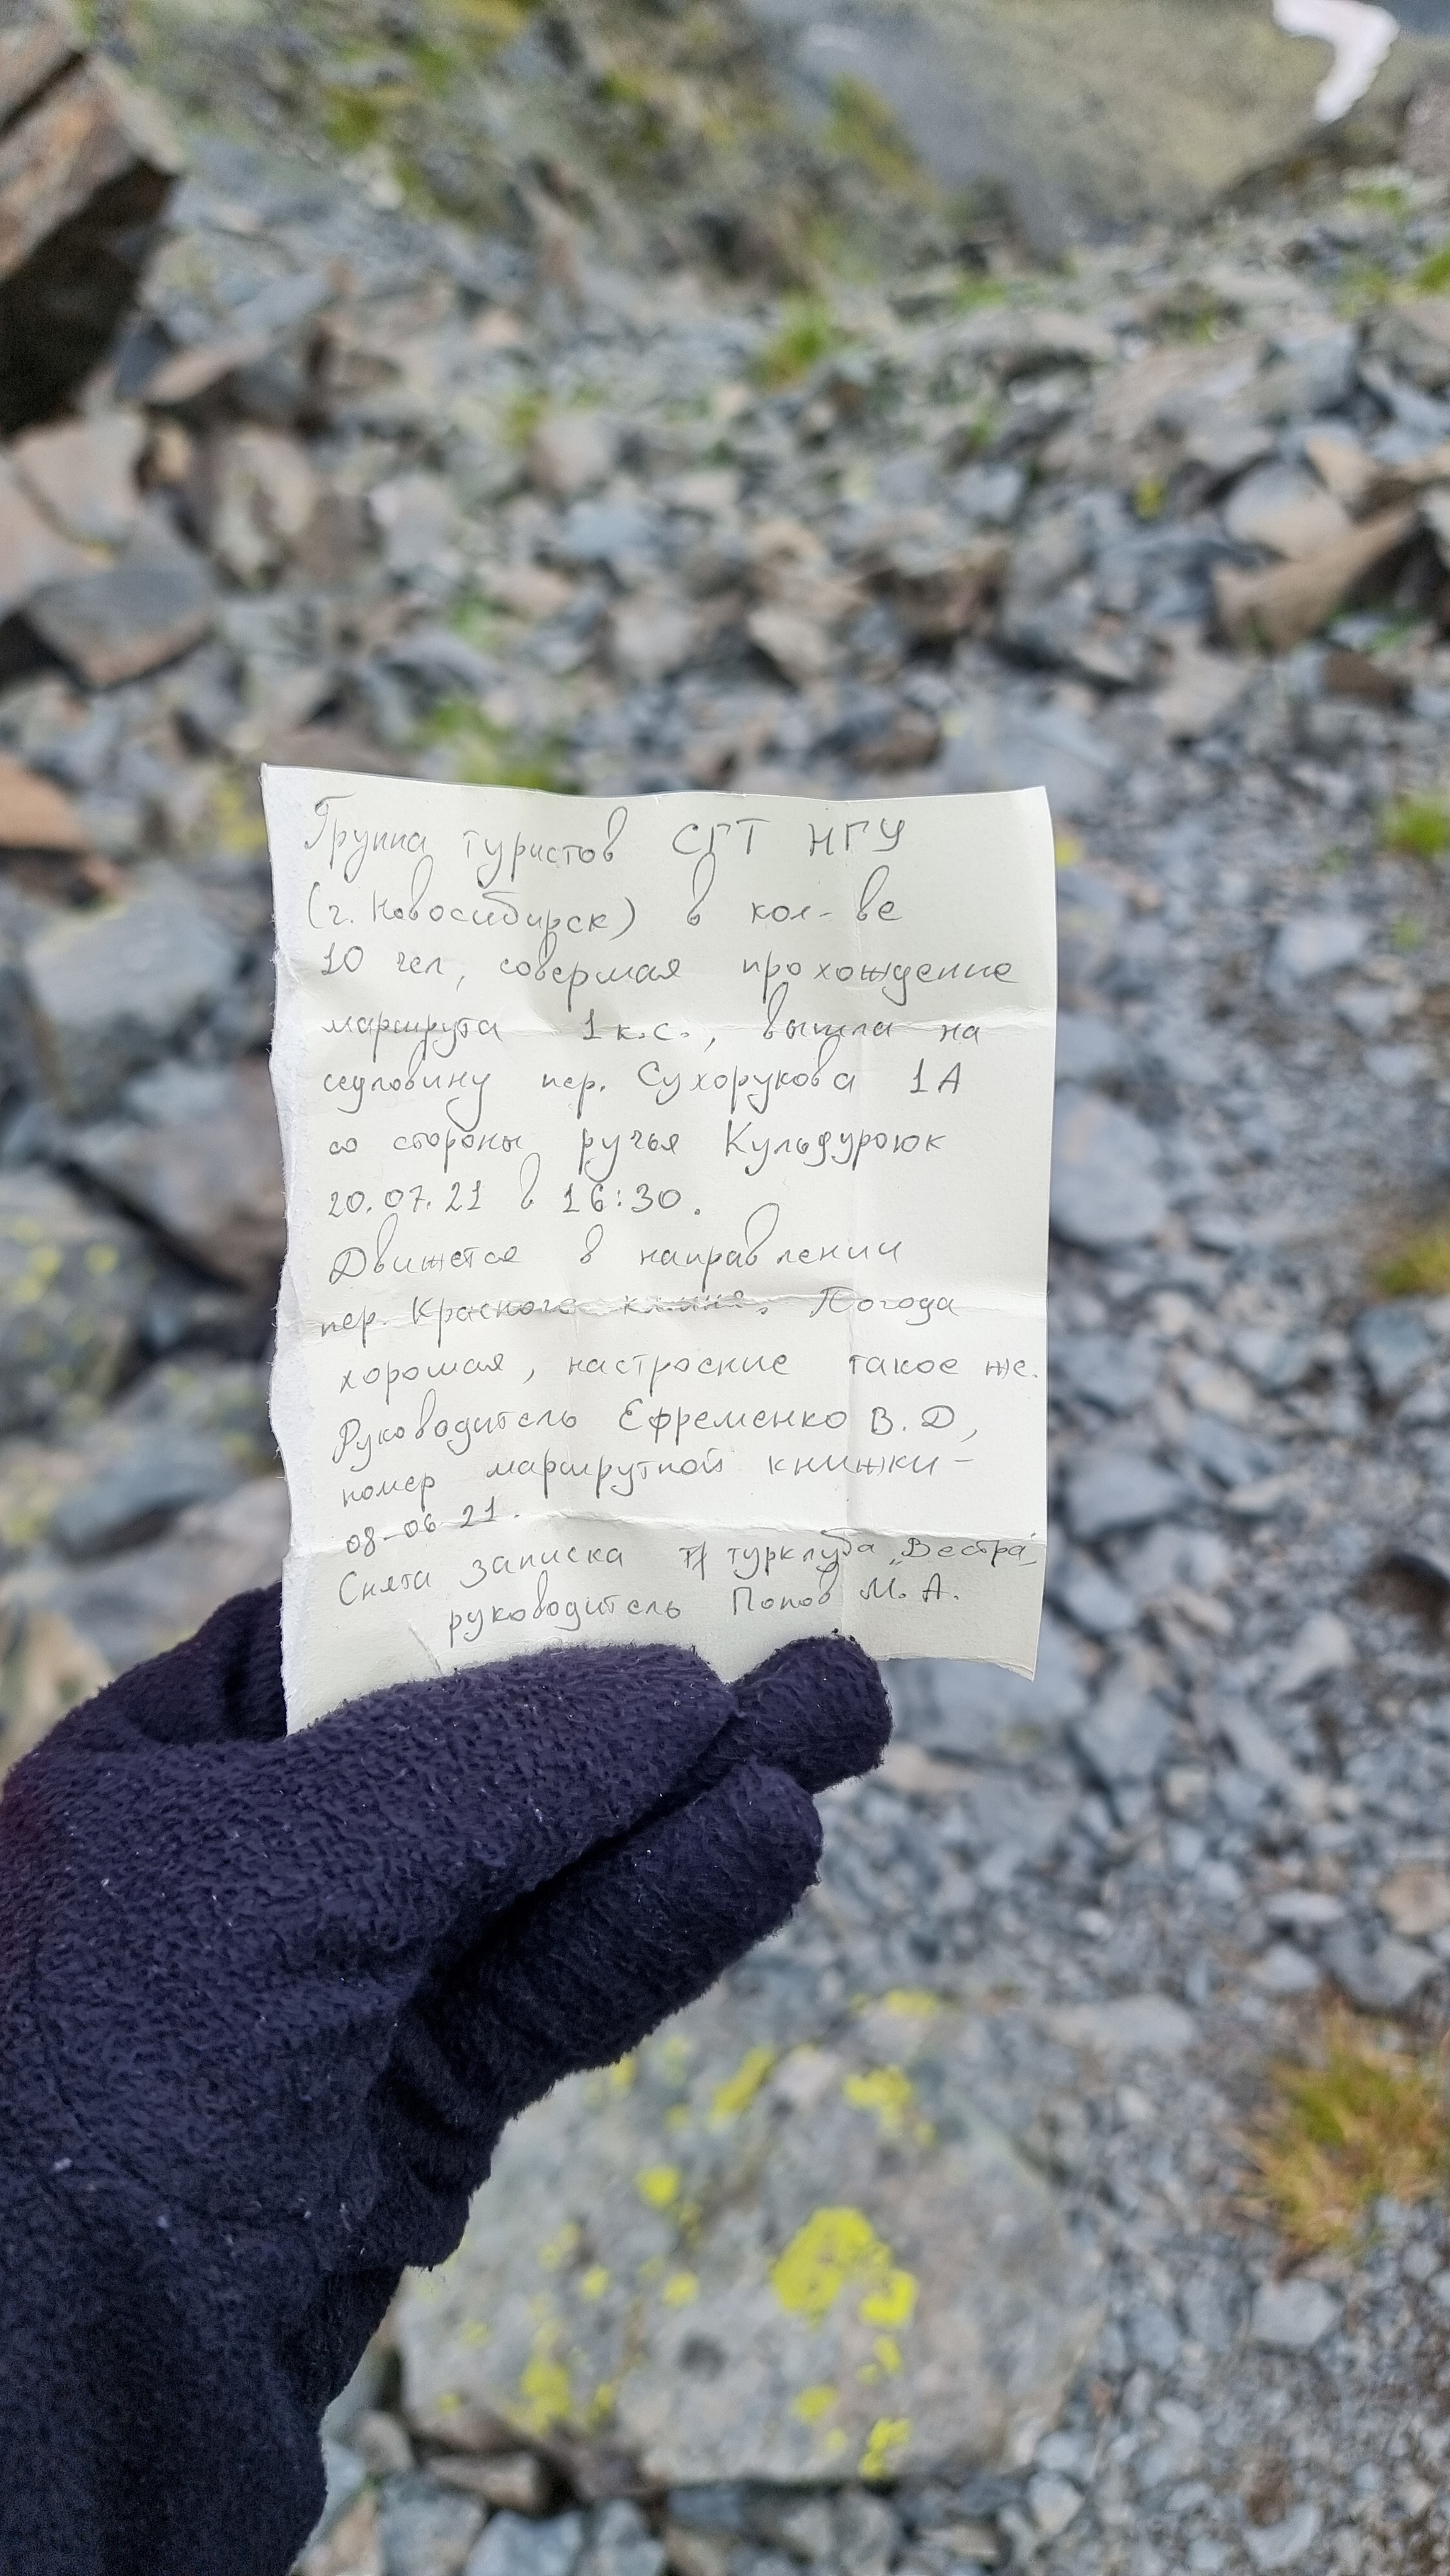 Группа туристов СГТ НГУ
(г. Новосибирск) в кол-ве
10 чел, совершая прохождение
маршрута 1 к.с., вышла на
седловину пер. Сухорукова 1А
со стороны ручья Кульдуроюк
20.07.21 в 16:30.
Движется в направлении
пер. Красного камня. Погода
хорошая, настроение такое же.
Руководитель Ефременко В. Д,
номер маршрутной книжки -
08-06 21.
Снята записка т/ турклуба „Вестра"
руководитель Попов М. А.